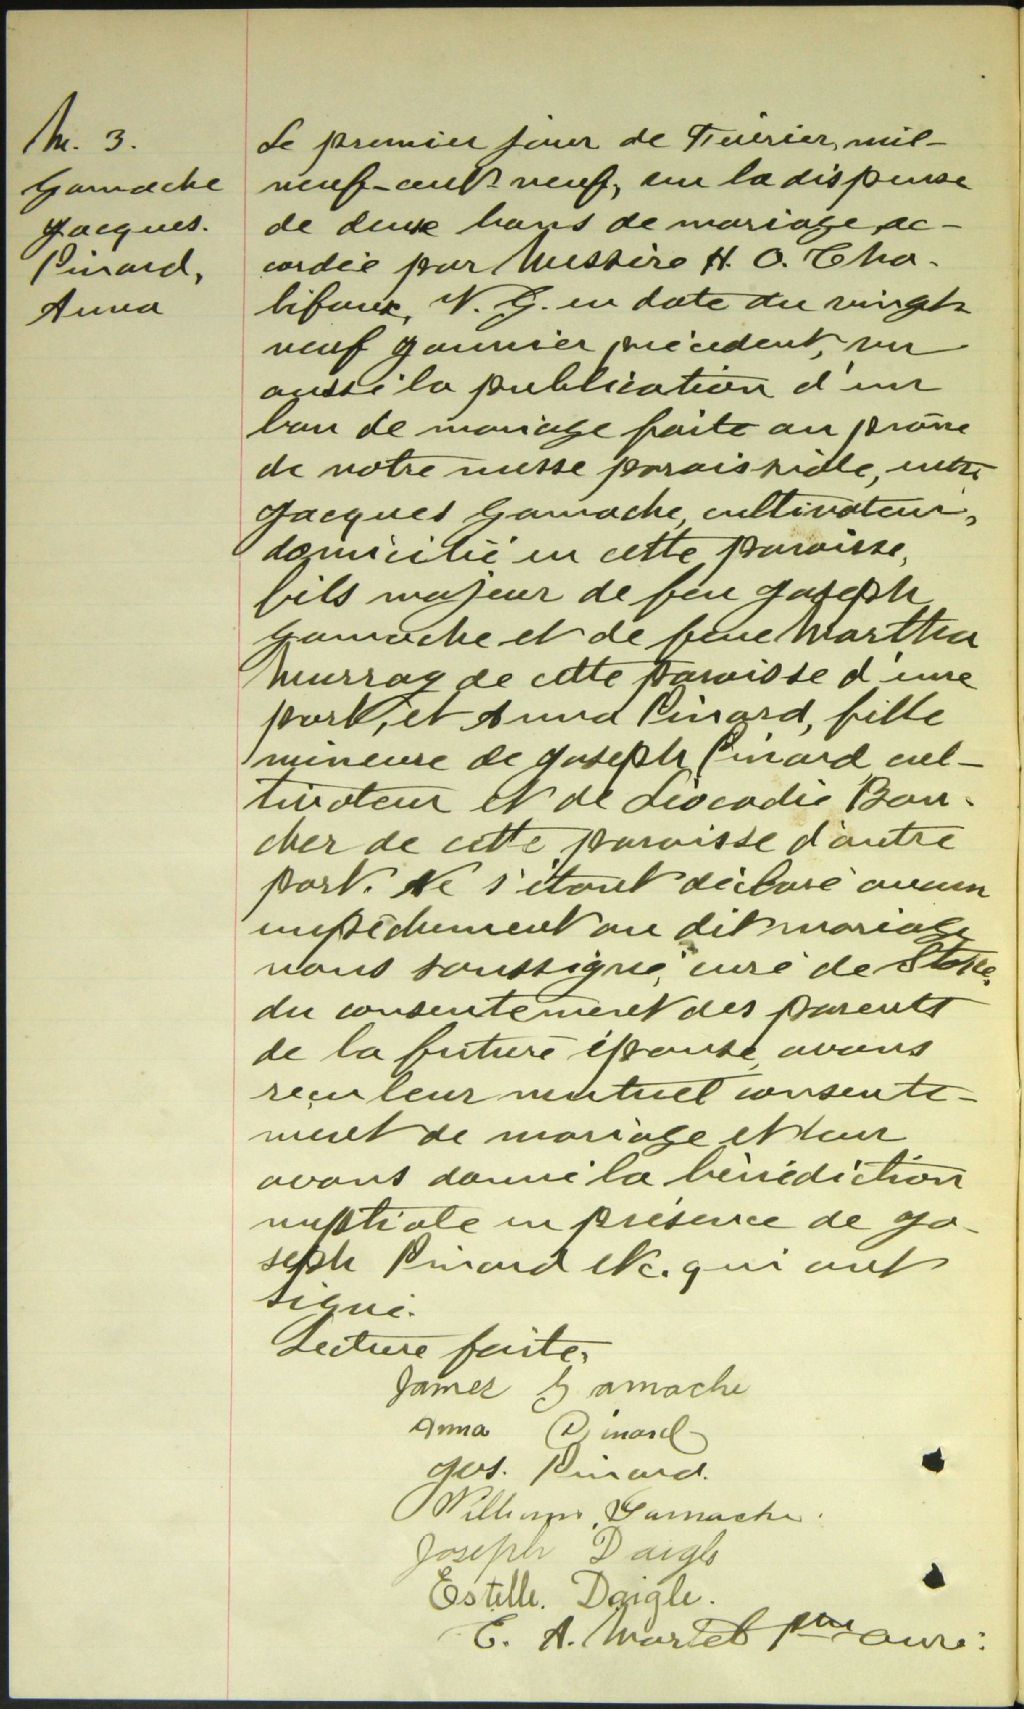 M. 3.
Gamache
Jacques.
Pinard,
Anna
Le premier jour de Février, mil-
neuf-cent-neuf, vu la dispense
de deux bans de mariage ac-
cordée par Messire H. O. Cha-
lifoux, V. G. en date du vingt-
neuf janvier précédent, vu
aussi la publication d'un
ban de mariage faite au prône
de notre messe paroissiale, entre
Jacques Gamache, cultivateur,
domicilié en cette paroisse,
fils majeur de feu Joseph
Gamache et de feue Martha
Murray de cette paroisse d'une
part, et Anna Pinard, fille
mineure de Joseph Pinard cul-
tivateur et de Léocadie Bou-
cher de cette paroisse d'autre
part. Ne s'étant déclaré aucun
empêchement au dit mariage
nous soussigné, curé de
du consentement des parents
de la future épouse, avons
reçu leur mutuel consente-
ment de mariage et leur
avons donné la bénédiction
nuptiale en présence de Jo-
seph Pinard etc. qui ont
signé.
Lecture faite.
James Gamache
Anna Pinard
Jos. Pinard.
William Gamache.
Joseph Daigle
Estelle. Daigle.
E. A. Martel ptre curé.